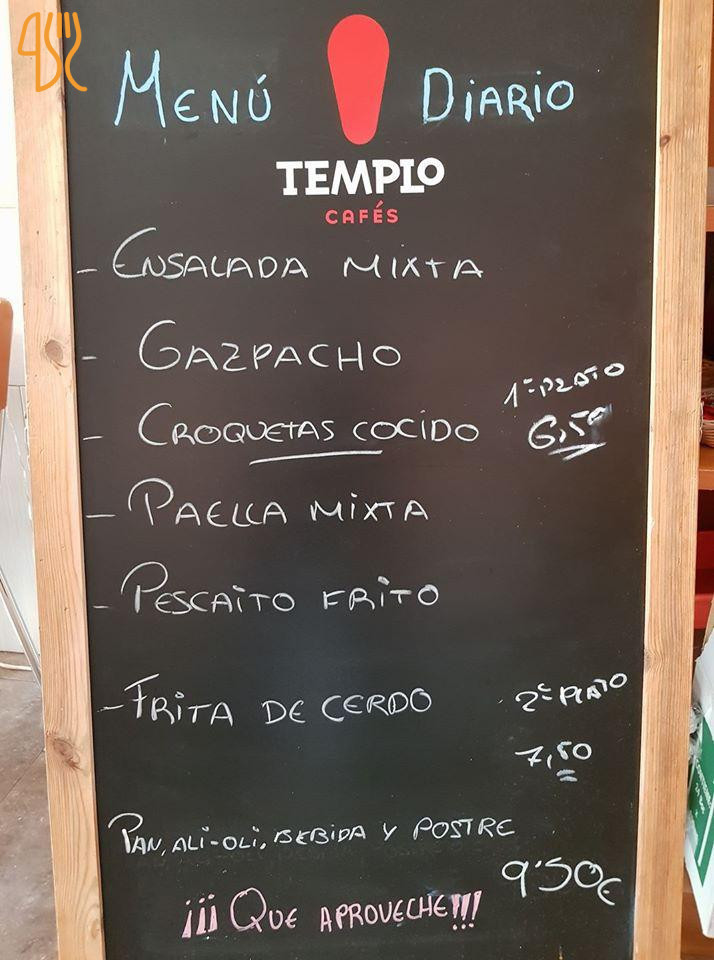 MENÚ DIARIO
TEMPLO
CAFÉS
- ENSALADA MIXTA
- GAZPACHO
1º PLATO
- CROQUETAS COCIDO 6,50
- PAELLA MIXTA
- PESCAITO FRITO
- FRITA DE CERDO 2º PLATO
7,50
PAN, ALI-OLI, BEBIDA Y POSTRE
9'50€
¡¡¡QUE APROVECHE!!!